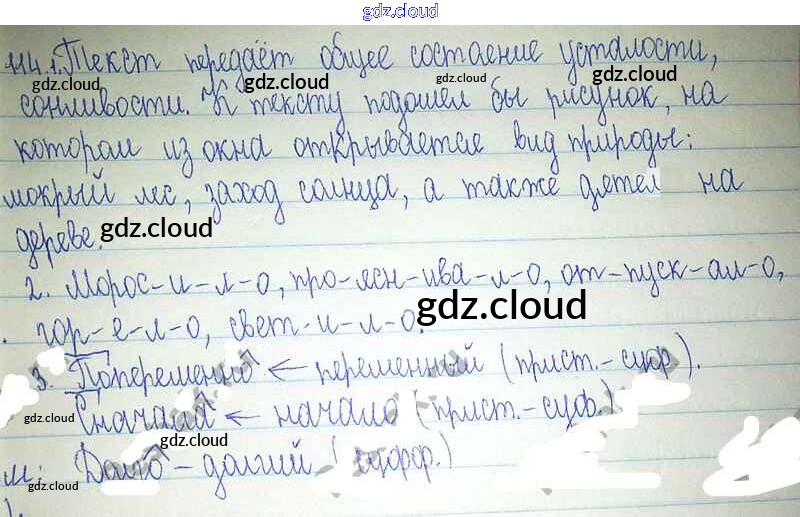 gdz.cloud
114.1. Текст передаёт общее состаение усталости,
gdz.cloud gdz.cloud gdz.cloud gdz.cloud
сонливости. К тексту подошел бы рисунок, на
котором из окна открывается вид природы:
мокрый лес, заход солнца, а также дятел на
дереве. gdz.cloud
2. Морос-и-л-о, про-ясн-ива-л-о, от-пуск-ал-о,
gdz.cloud
гор-е-л-о, свет-и-л-о.
3. Попеременно ← переменный (прист.-суф).
Сначала ← начало (прист.-суф.)
gdz.cloud gdz.cloud gdz.cloud
Долго - долгий (суф.)
gdz.cloud gdz.cloud